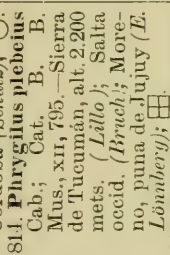 814. Phrygilus plebeius
Cab.; Cat. B. B.
Mus., XII, 795.—Sierra
de Tucumán, alt. 2.200
mets. (Lillo); Salta
occid. (Bruch!; More-
no, puna de Jujuy (E.
Lönnberg);